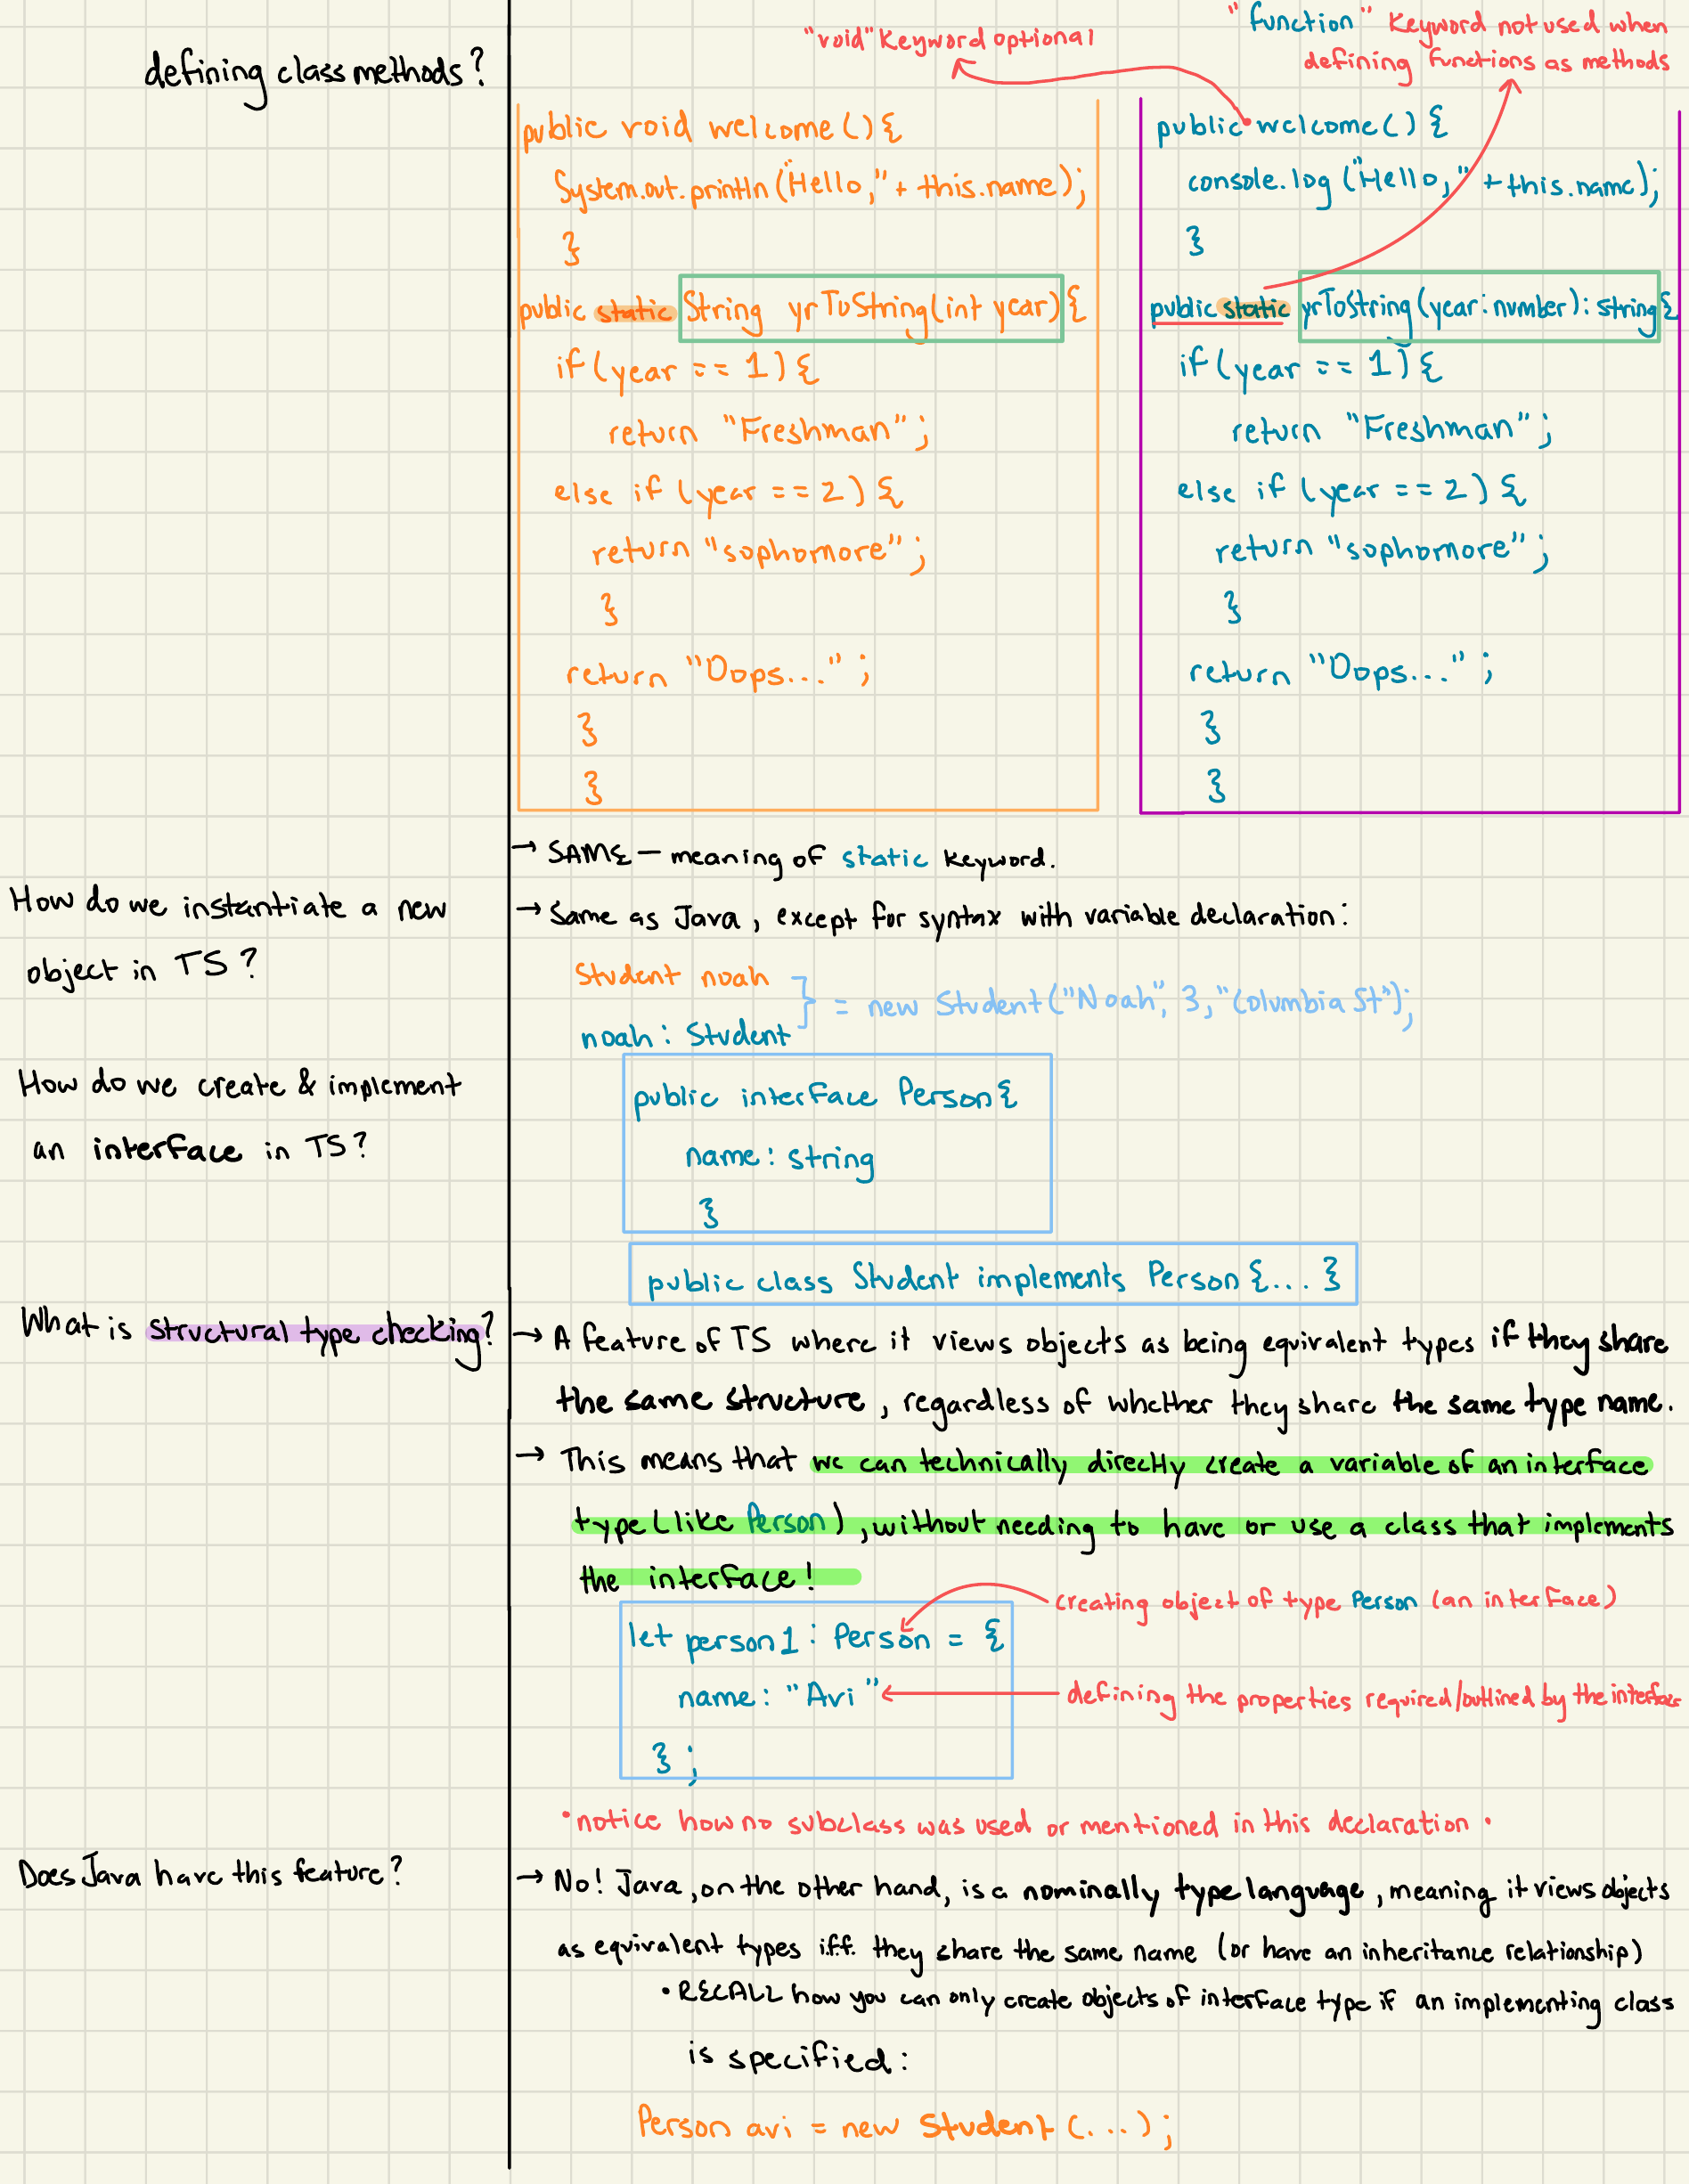 defining class methods?
"void" keyword optional
"function" keyword not used when
defining functions as methods
public void welcome(){
System.out.println("Hello," + this.name);
}
public static String yrToString(int year){
if(year == 1){
return "Freshman";
else if (year == 2){
return "sophomore";
}
return "Oops...";
}
}
public welcome(){
console.log("Hello," + this.name);
}
public static yrToString(year: number): string{
if(year == 1){
return "Freshman";
else if (year == 2){
return "sophomore";
}
return "Oops...";
}
}
→ SAME — meaning of static keyword.
How do we instantiate a new
object in TS?
→ Same as Java, except for syntax with variable declaration:
Student noah
noah: Student
} = new Student("Noah", 3, "Columbia St");
How do we create & implement
an interface in TS?
public interface Person{
name: string
}
public class Student implements Person{... }
What is structural type checking?
→ A feature of TS where it views objects as being equivalent types if they share
the same structure, regardless of whether they share the same type name.
→ This means that we can technically directly create a variable of an interface
type (like Person), without needing to have or use a class that implements
the interface!
let person1: Person = {
name: "Avi"
};
creating object of type Person (an interface)
defining the properties required/outlined by the interface
• notice how no subclass was used or mentioned in this declaration •
Does Java have this feature?
→ No! Java, on the other hand, is a nominally type language, meaning it views objects
as equivalent types iff. they share the same name (or have an inheritance relationship)
• RECALL how you can only create objects of interface type if an implementing class
is specified:
Person avi = new Student (...);